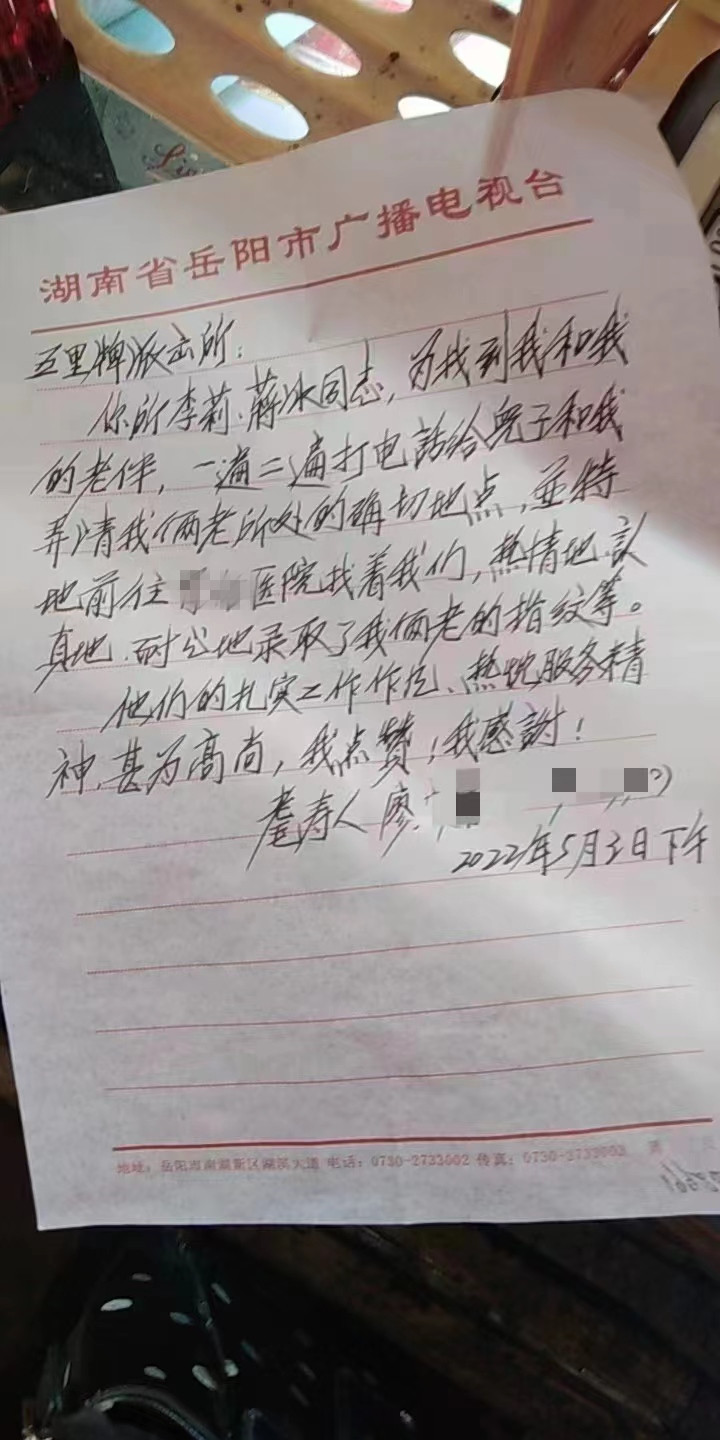 湖南省岳阳市广播电视台
五里牌派出所：
你所李莉、蒋冰同志，为找到我和我
的老伴，一遍二遍打电話给兒子和我
弄清我俩老所处的确切地点，並特
地前往医院找着我们，热情地、認
真地、耐心地录取了我俩老的指纹等。
他们的扎实工作作风、热忱服务精
神，甚为高尚，我点赞！我感謝！
耄寿人 廖
2022年5月3日下午
地址：岳阳市南湖新区湖滨大道 电话：0730-2733002 传真：0730-2733003